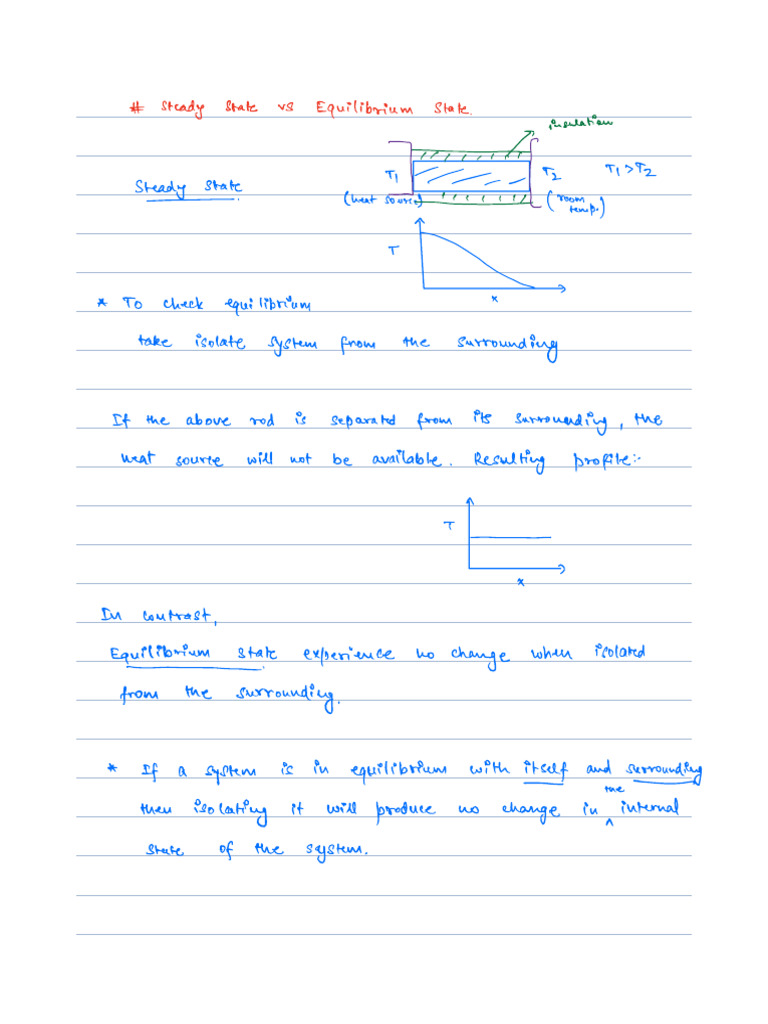 # Steady State vs Equilibrium State.
insulation
T1
T2
T1 > T2
Steady State
(heat source)
(room
temp.)
T
x
* To check equilibrium
take isolate system from the surrounding
If the above rod is separated from its surrounding, the
heat source will not be available. Resulting profile:-
T
x
In contrast,
Equilibrium State experience no change when isolated
from the surrounding.
* If a system is in equilibrium with itself and surrounding
then isolating it will produce no change in the internal
state of the system.